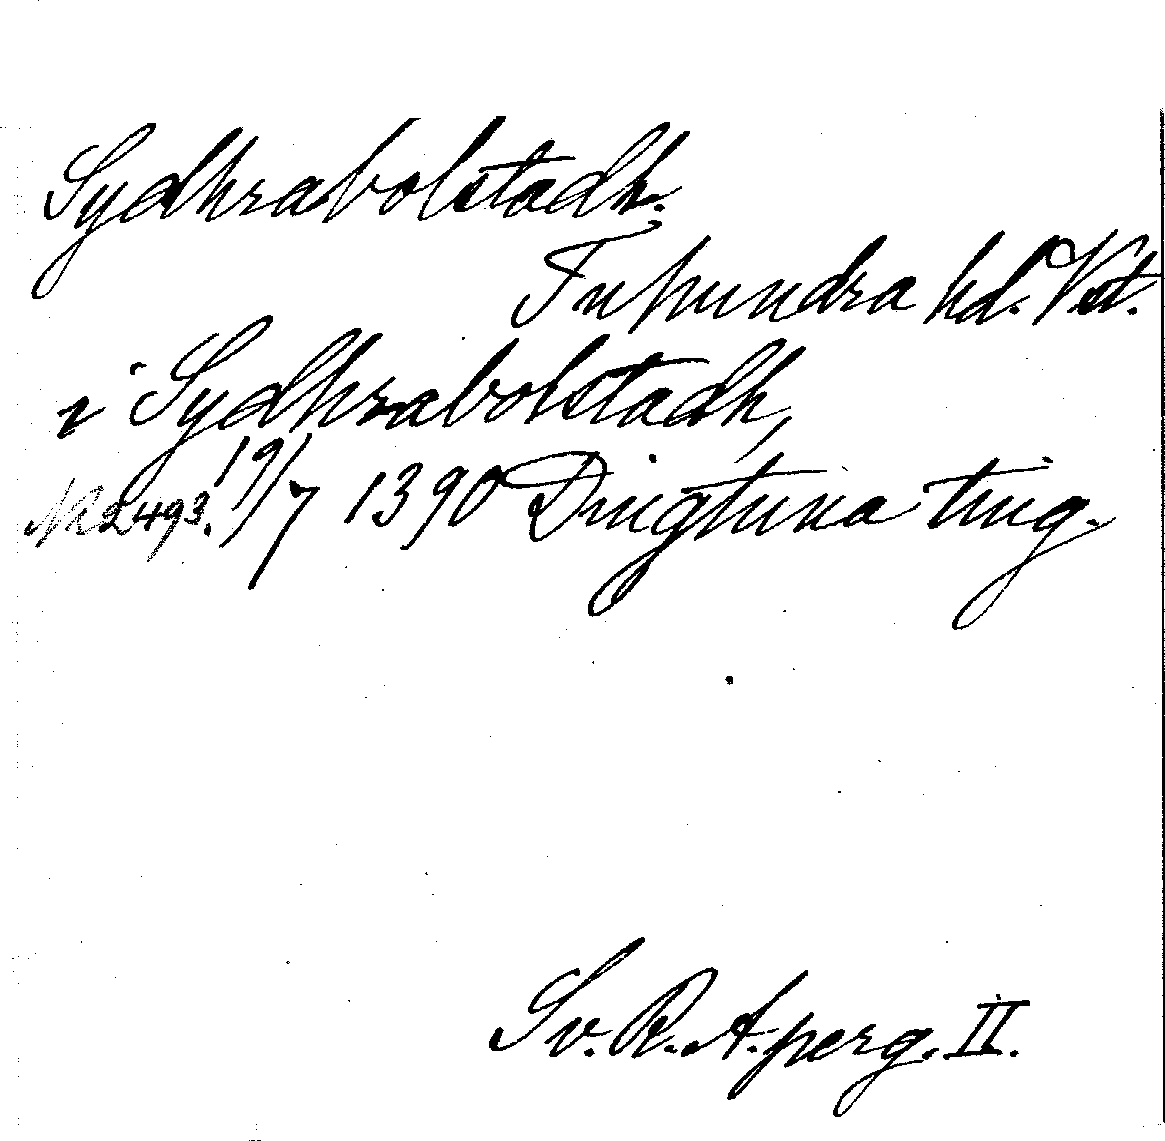 Sydhrabolstadh.
Tuhundra hd. Vstm.
i Sydhrabolstadh,
NR 2493. 19/7 1390 Dingtuna ting.
Sv. R. A. perg. II.